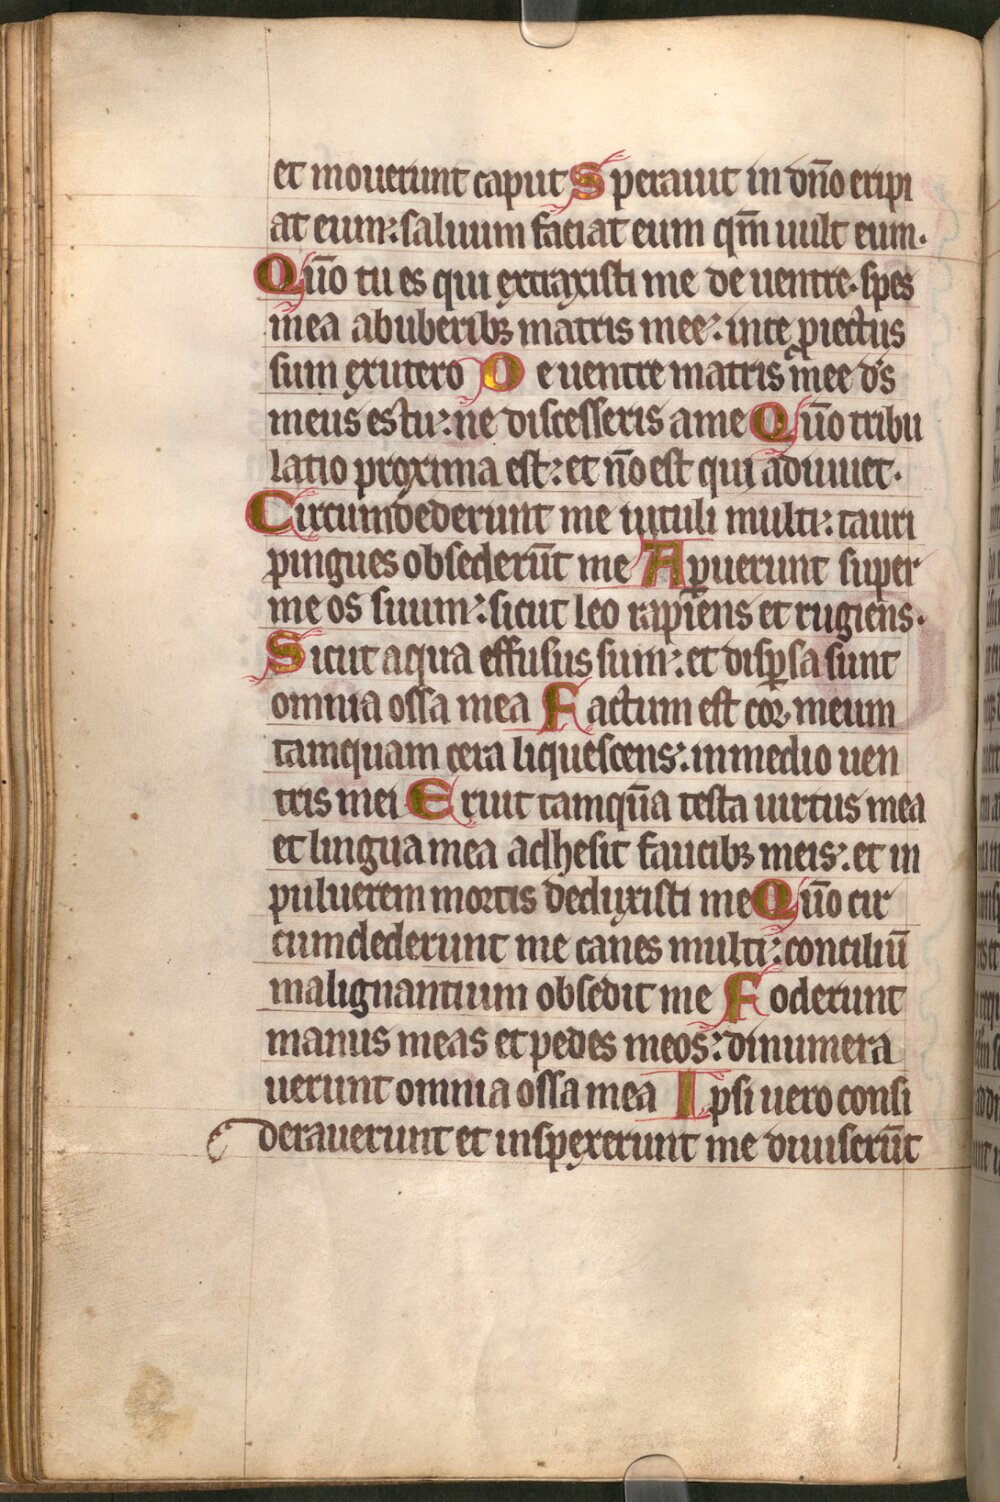 et mouerunt caput Sperauit in dn̄o eripi
at eum: saluum faciat eum qm̄ uult eum.
Qūo tu es qui extraxisti me de uentre. spes
mea ab uberibꝫ matris mee: in te ꝓiectus
sum ex utero De uentre matris mee ds̄
meus es tu: ne discesseris a me Qūo tribu
latio proxima est: et n̄o est qui adiuuet.
Circumdederunt me uituli multi: tauri
pingues obsederūt me Aꝑuerunt super
me os suum: sicut leo rapiens et rugiens.
Sicut aqua effusus sum: et disꝑsa sunt
omnia ossa mea Factum est cor meum
tamquam cera liquescens: in medio uen
tris mei Eruit tamqūa testa uirtus mea
et lingua mea adhesit faucibꝫ meis: et in
puluerem mortis deduxisti me Qūo cir
cumdederunt me canes multi: conciliū
malignantium obsedit me Foderunt
manus meas et pedes meos: dinumera
uerunt omnia ossa mea Ipsi uero consi
derauerunt et inspexerunt me diuiserūt